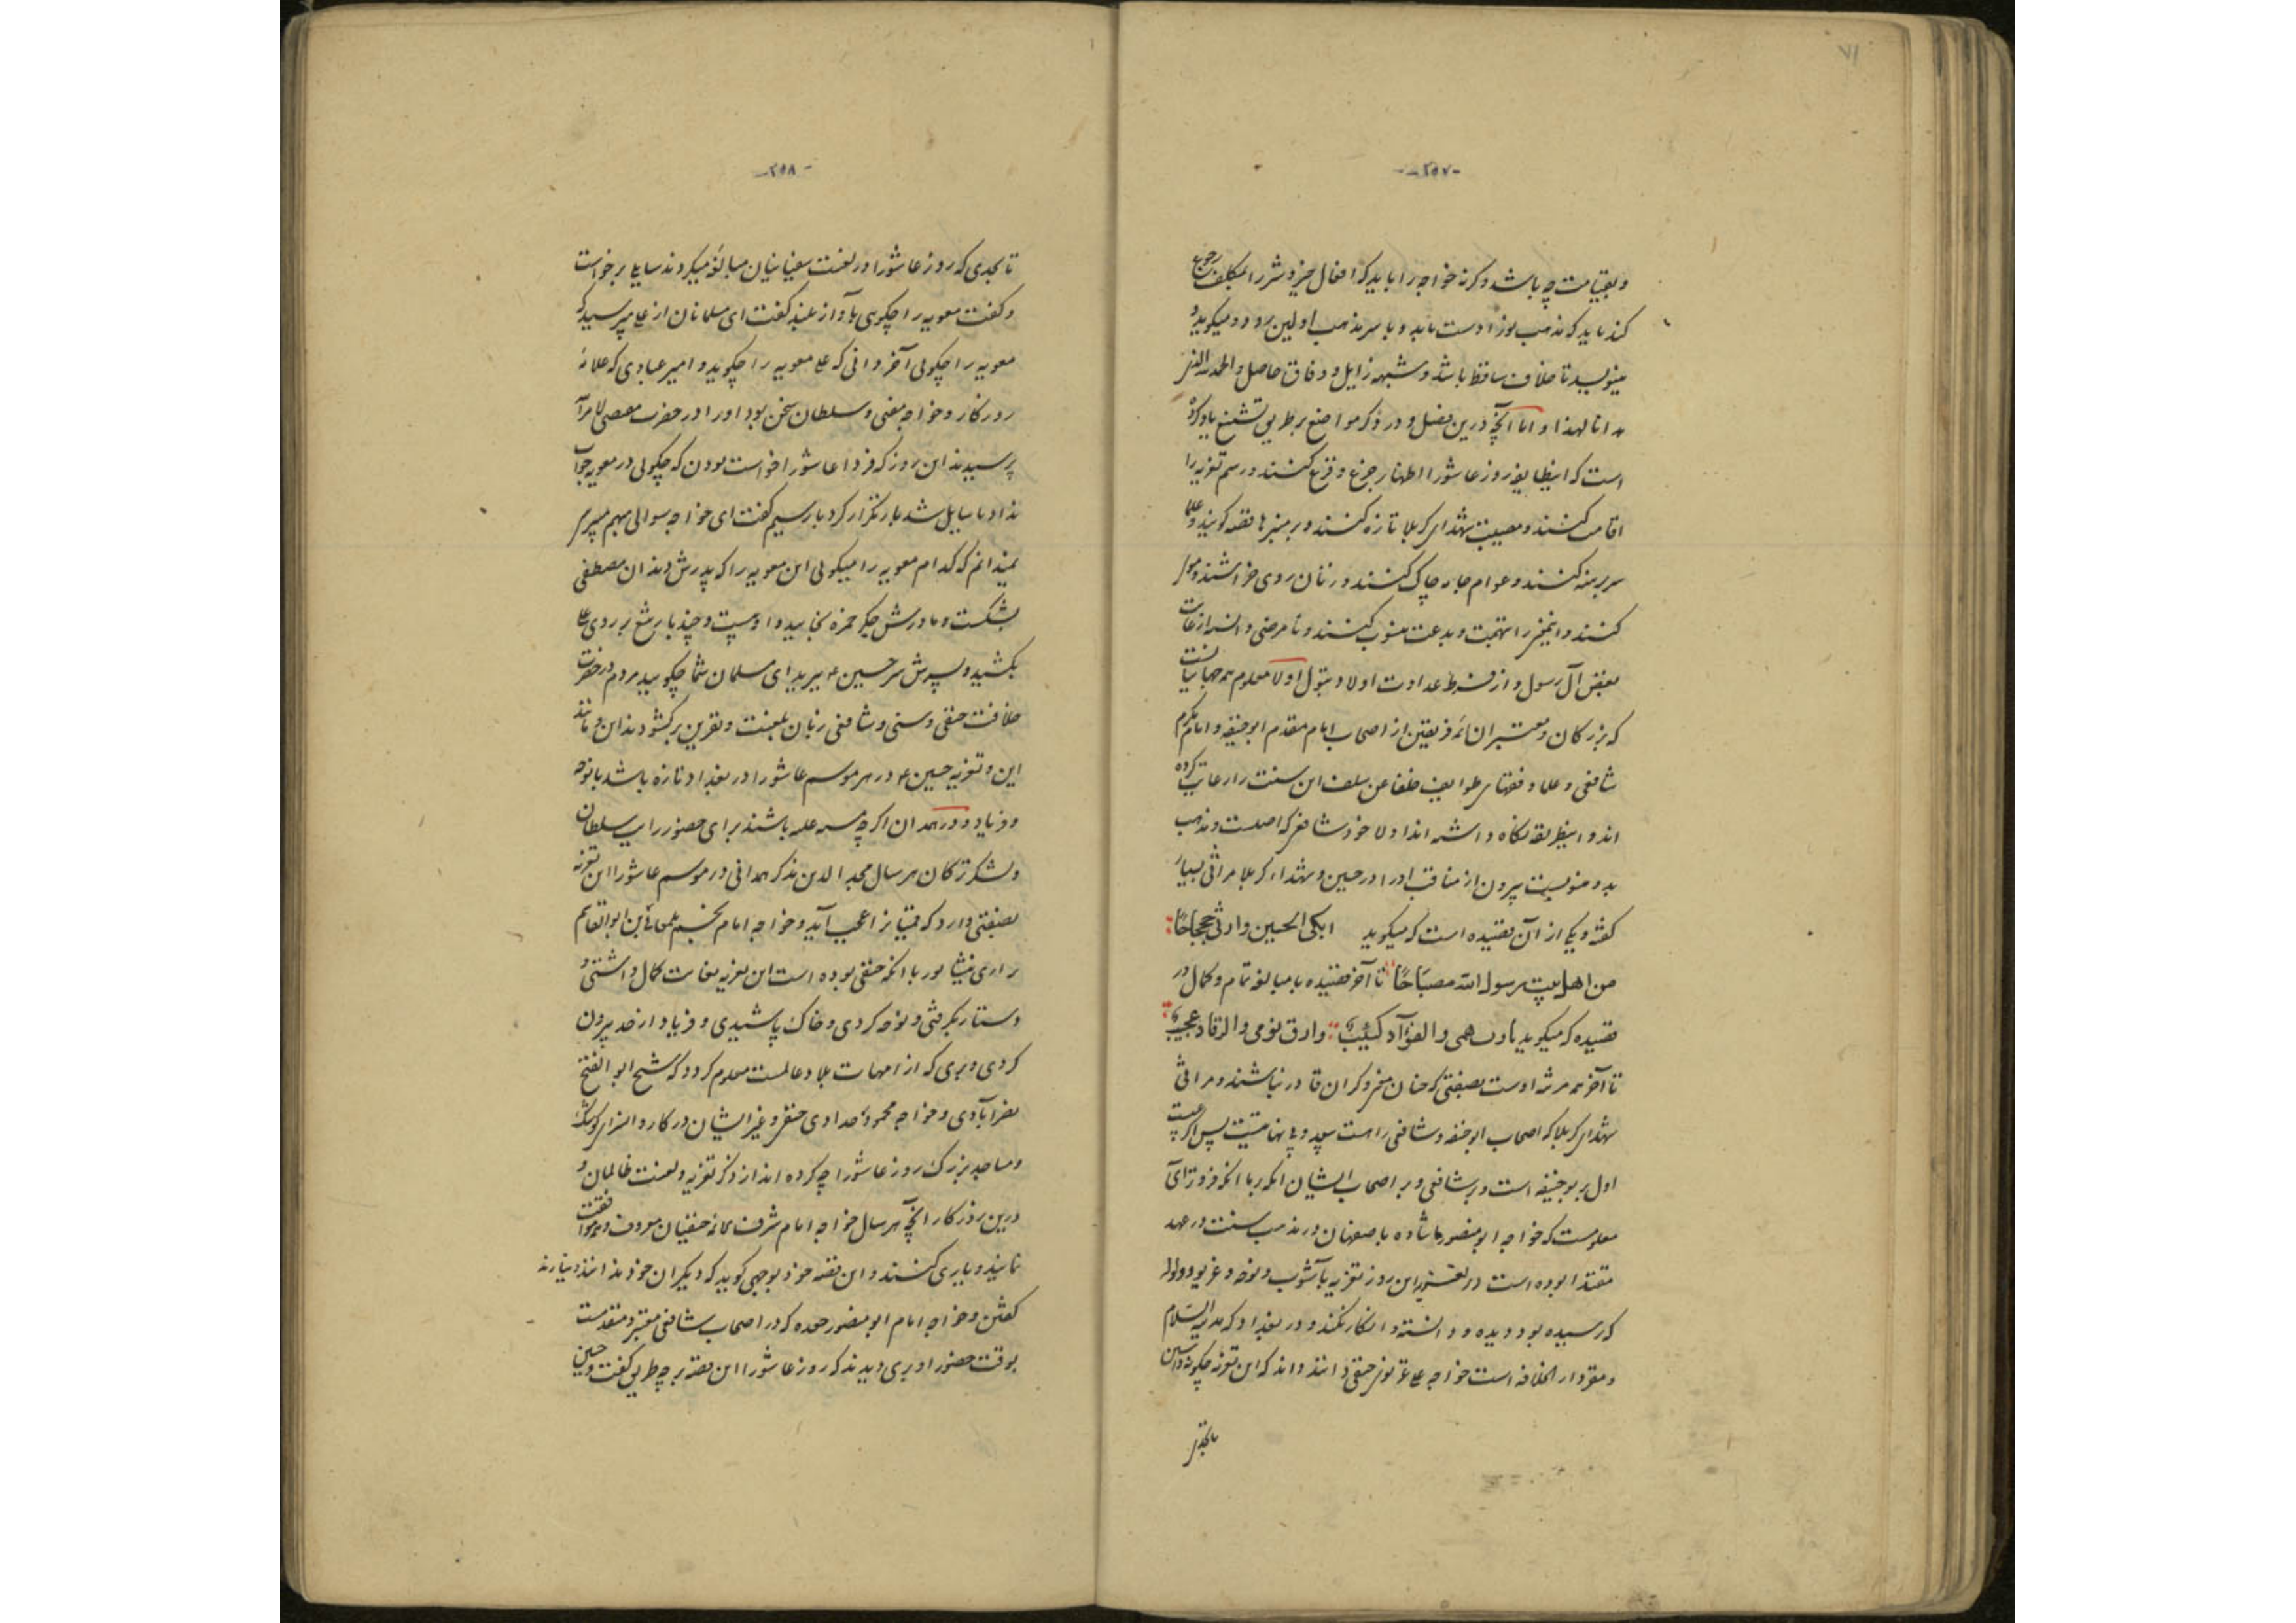 ۷۱
-۲۵۷-
و بقیامت چه باشد و کرنه خواجه را باید که افعال خیر و شر را بمکلف رجوع
کند باید که مذهب بوزا دست بدارد و با سر مذهب اولین رود و میکوید و
مینویسد تا خلاف ساقط باشد و شبهه زایل و وفاق حاصل و الحمد لله الذی
هدانا لهذا و اما آنچه درین فصل و در ذکر مواضع بر طریق تشنیع یاد کرده
است که اینطایفه روز عاشورا اظهار جزع و فزع کنند و رسم تعزیه را
اقامت کنند و مصیبت شهدای کربلا تازه کنند و بر منبرها قصه کویند و علما
سر برهنه کنند و عوام جامه چاک کنند و زنان روی خراشند و مویه
کنند و اینمعنی را بتهمت و بدعت منسوب کنند و نامرضی دانند از غایت
بغض آل رسول و از فرط عداوت اولاد بتول اولا معلوم همه جهانیانست
که بزرکان و معتبران ائمه فریقین از اصحاب امام مقدم ابوحنیفه و امام مکرم
شافعی و علما و فقهای طوایف خلفا عن سلف این سنت را رعایت کرده
اند و اینطریقه نکاه داشته اند اولا خود شافعی که اصلست و مذهب
بدو منسوبست بیرون از مناقب او را در حسین و شهداء کربلا مراثی بسیار
کفته و یکی از آن قصیده است که میکوید ابکی الحسین وارثی جحجاحًا
من اهل بیت رسول الله مصبَاحًا تا آخر قصیده با مبالغه تمام و کمال و در
قصیده که میکوید تاوب همی والفؤآد کئیب وارق نومی والرقاد عجیب
تا آخر همه مرثیه اوست بصفتی که چنان معنی دیکران قادر نباشند و مراثی
شهدای کربلا که اصحاب ابوحنیفه و شافعی راهست بیعدد و بی نهایتست پس اکر عیبست
اول بر بوحنیفه است و بر شافعی و بر اصحاب ایشان آنکه بر ما آنکه فروتر آی
معلومست که خواجه ابومنصور ماشاده باصفهان در مذهب سنت در عهد
مقتدا بوده است در هر سال این روز تعزیه بآشوب و نوحه و غریو و ولوله
که رسیده بود دیده و دانسته و انکار نکند و در بغداد که مدینه السّلام
و مقر دار الخلافه است خواجه علی غزنوی حنفی دانند و اند که این تعزیه چکونه داشتی
تا بحدی
-۲۵۸-
تا بحدی که روز عاشورا در لعنت سفیانیان مبالغه میکردند سایلی برخواست
و کفت معویه را چکوئی بآواز بلند کفت ای مسلمانان از علی میپرسید که
معویه را چکوئی آخر دانی که علی معویه را چکوید و امیر عبادی که علامه
روزکار و خواجه معنی و سلطان سخن بود او را در حضرت مقتفی لامرالله
پرسیدند ان روز که فردا عاشورا خواست بودن که چکوئی در معویه جواب
نداد تا سایل سه بار تکرار کرد بار سیم کفت ای خواجه سوالی مبهم میپرسی
نمیدانم که کدام معویه را میکوئی این معویه را که پدرش دندان مصطفی
بشکست و مادرش جکر حمزه بخایید و او بیست و چند بار تیغ بر روی علی
بکشید و پسرش سر حسین ع ببرید ای مسلمان شما چکویید مردم در حضرت
خلافت حنفی و سنی و شافعی زبان بلعنت و نفرین برکشودند این و مانند
این و تعزیه حسین ع در هر موسم عاشورا در بغداد تازه باشد با نوحه
و فریاد و در همدان اکرچه مشبهه غلبه باشند برای حضور رایت سلطان
و لشکر ترکان هر سال مجد الدین مذکر همدانی در موسم عاشورا این تعزیه
بصفتی دارد که قمیان را عجب آید و خواجه امام نجم بلمعالی بن ابوالقاسم
بزاری نیشابور با آنکه حنفی بوده است این تعزیه بغایت کمال داشتی و
دستار بکرفتی و نوحه کردی و خاک پاشیدی و فریاد از حد بیرون
کردی و بری که از امهات بلاد عالمست معلوم کردد که شیخ ابوالفتح
نصرآبادی و خواجه محمود حدادی حنفی و غیر ایشان در کاروانسرای کوشک
و مساجد بزرک روز عاشورا چه کرده اند از ذکر تعزیه و لعنت ظالمان و
درین روزکار آنچه هر سال خواجه امام شرف الائمه حنفیان معروف و همه موافقت
نمایند و یاری کنند و این قصه خود بوجهی کوید که دیکران خود ندانند و نیارند
کفتن و خواجه امام ابومنصور حفده که در اصحاب شافعی معتبر و متقدمست
بوقت حضور او بری دیدند که روز عاشورا این قصه بر چه طریق کفت و حسین